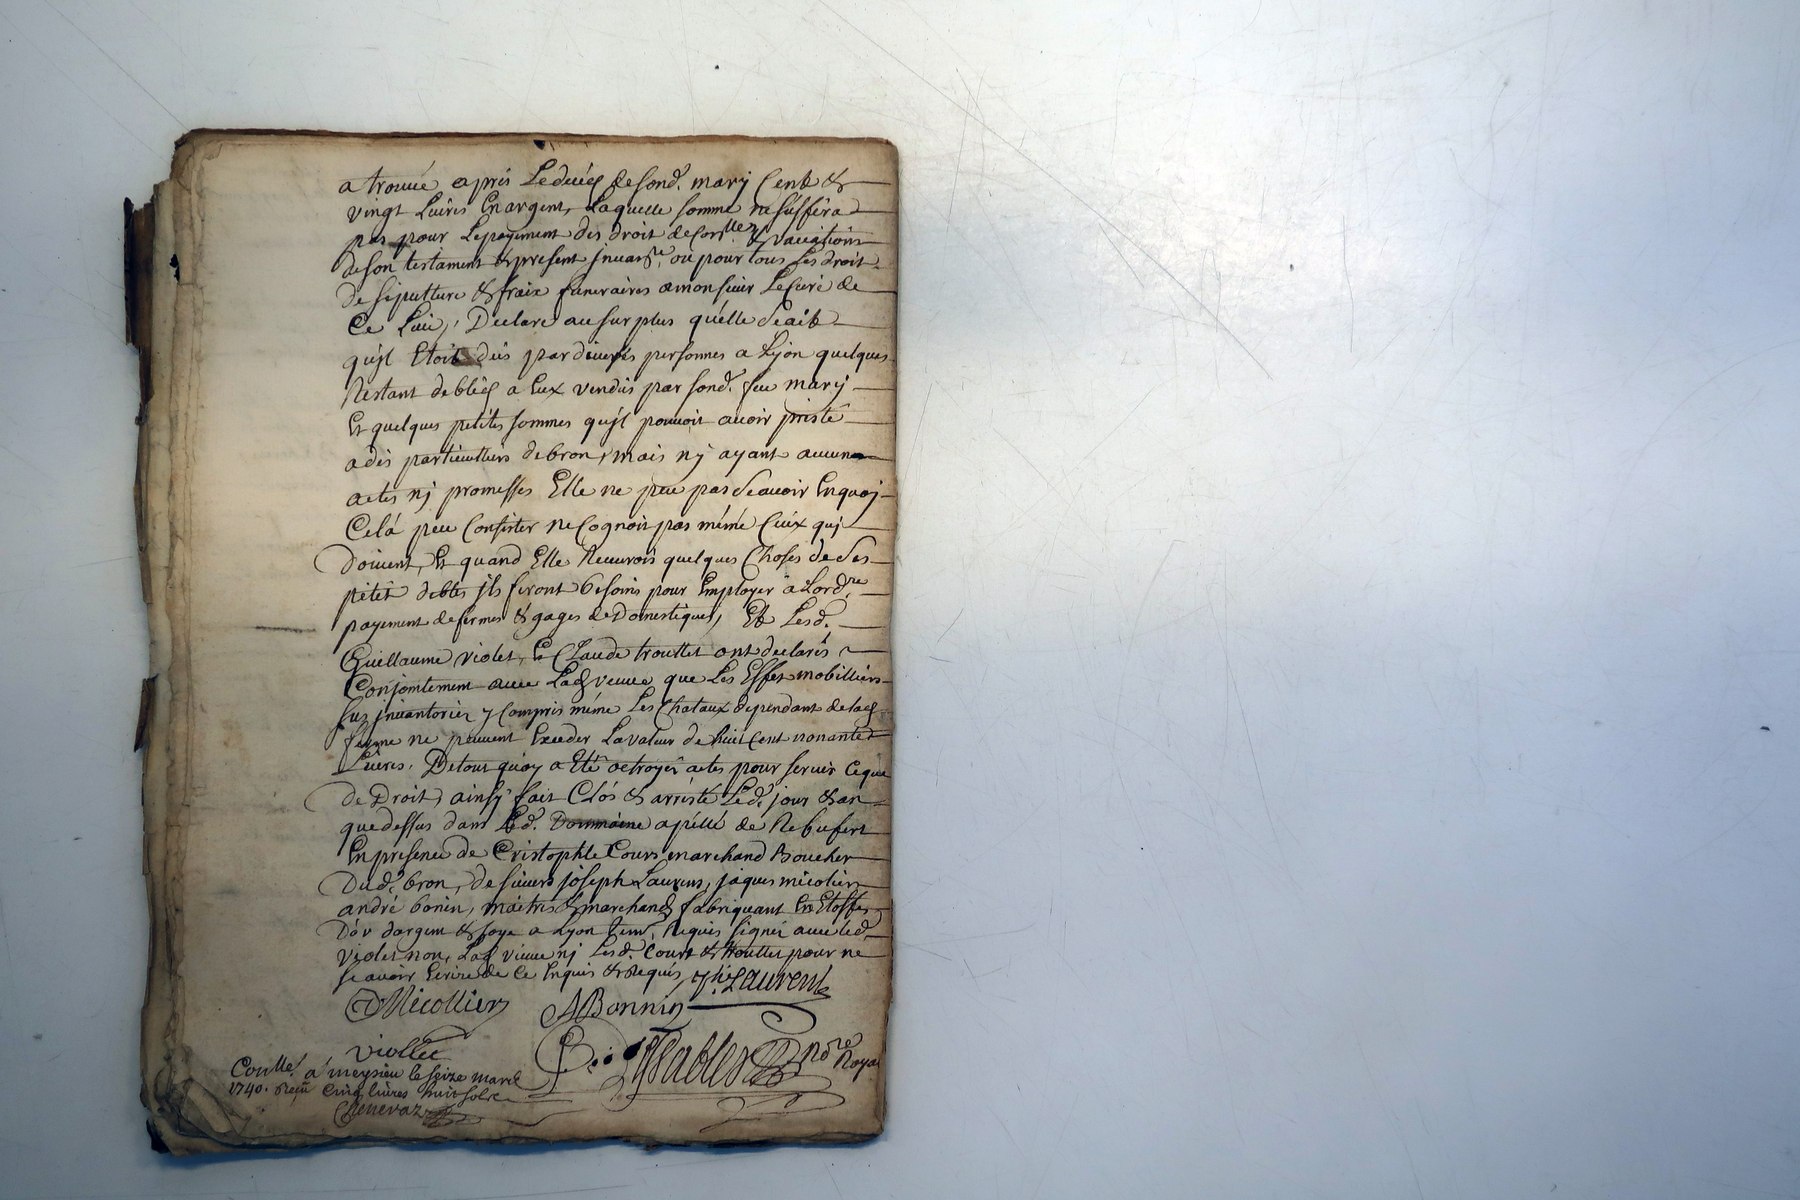 a trouvé apres Le décéz de sond. mary Cent &
vingt Livres En argent, Laquelle somme ne suffira
pas pour Le payement des droit de Con.lle & vacations
de son testament & present Jnvan.re ou pour tous Les droit
de sepulture & fraix funeraires a monsieur Le Curé de
Ce Lieu, Declare au surplus qu'elle Scait
qu'jl Etoit deüs par diverses personnes a Lyon quelques
Restant de bléz a Eux vendus par sond. feu mary
Et quelques petites sommes qu'jl pouvoit avoir presté
a des particulliers de bron, mais ny ayant aucuns
actes nj promesses Elle ne peu pas Scavoir En quoj
Cela peu Consister ne Cognoit pas même Ceux quj
Doivent, Et quand Elle Recevroit quelques Choses de Ses
petit debtes jls seront besoins pour Employer a Lord.re
payement de fermes & gages de Domestiques, Et Lesd.
Guillaume violet, Et Claude trouttet ont declarés
Conjointement avec Lad. veuve que Les Effet mobilliers
sus jnvantoriez y Compris même Les Chataux dependant de lad.
ferme ne peuvent Exceder La valeur de huit Cent nonante
Livres. De tout quoy a Eté octroyer actes pour servir Ce que
de Droit, ainsy fait Clos & arresté Led. jour & an
que dessus dans Led. Dommaine apellé de Rebufert
En presence de Cristophle Cours marchand Boucher
Dud. bron, de sieurs joseph Laurens, jaques micolier
andré bonin, maitres & marchands fabriquant En Etoffes
D'or d'argent & soye a Lyon tem. Requis signés avec led.
violet non Lad. veuve nj Lesd. Court & trouttet pour ne
scavoir Ecrire de Ce Enquis & Requis, Jh. Laurent
Micollier ABonnin
viollet
nore Royal
Con.lle a meysieu le seize mars
1740. Reçu cinq livres huit sols
Genevaz